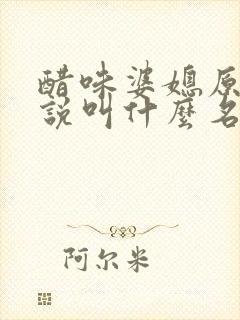 醋味婆媳原
說叫什麼名
阿尔米